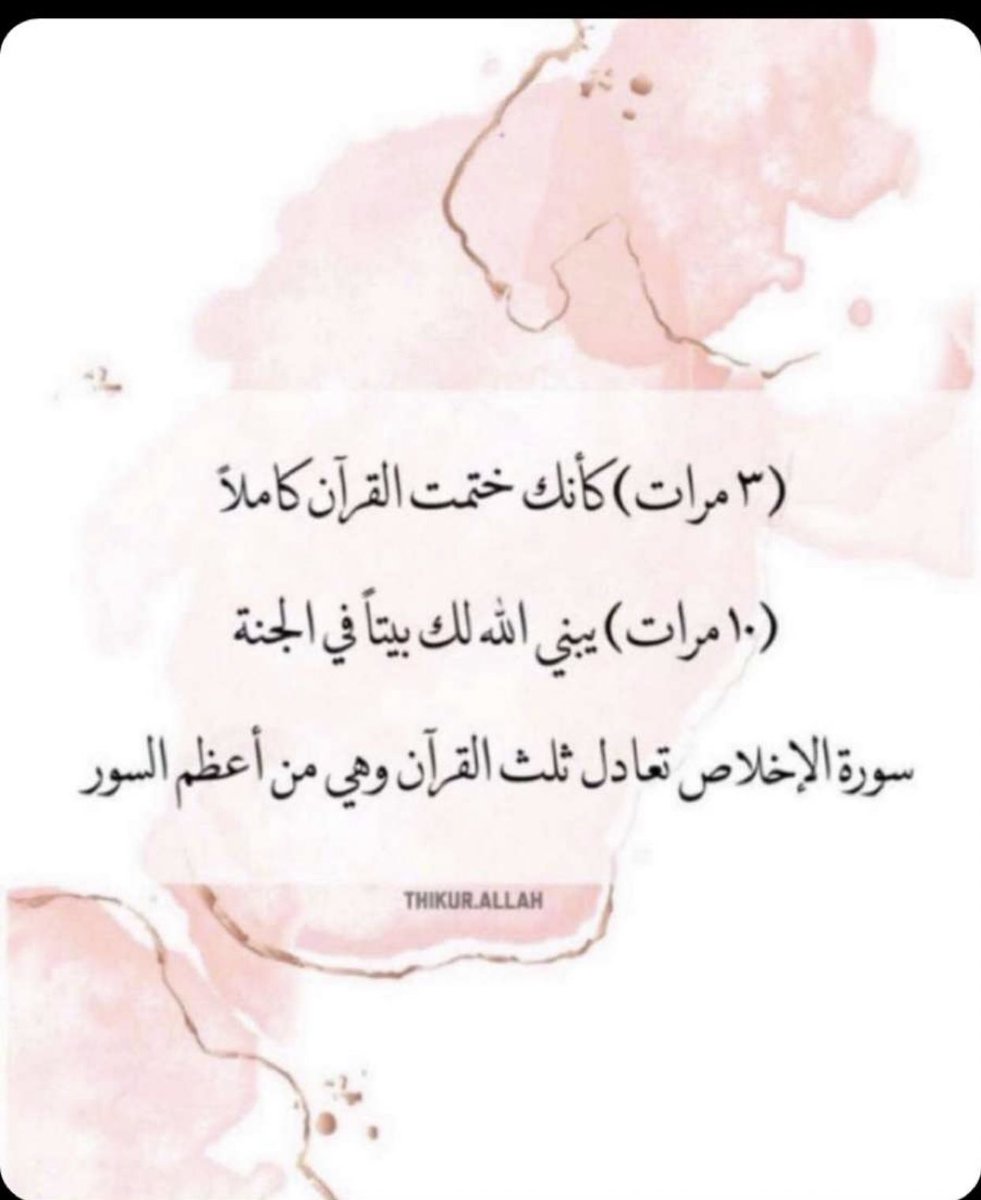 (٣ مرات) كأنك ختمت القرآن كاملاً
(١٠ مرات) يبني الله لك بيتاً في الجنة
سورة الإخلاص تعادل ثلث القرآن وهي من أعظم السور
THIKUR.ALLAH